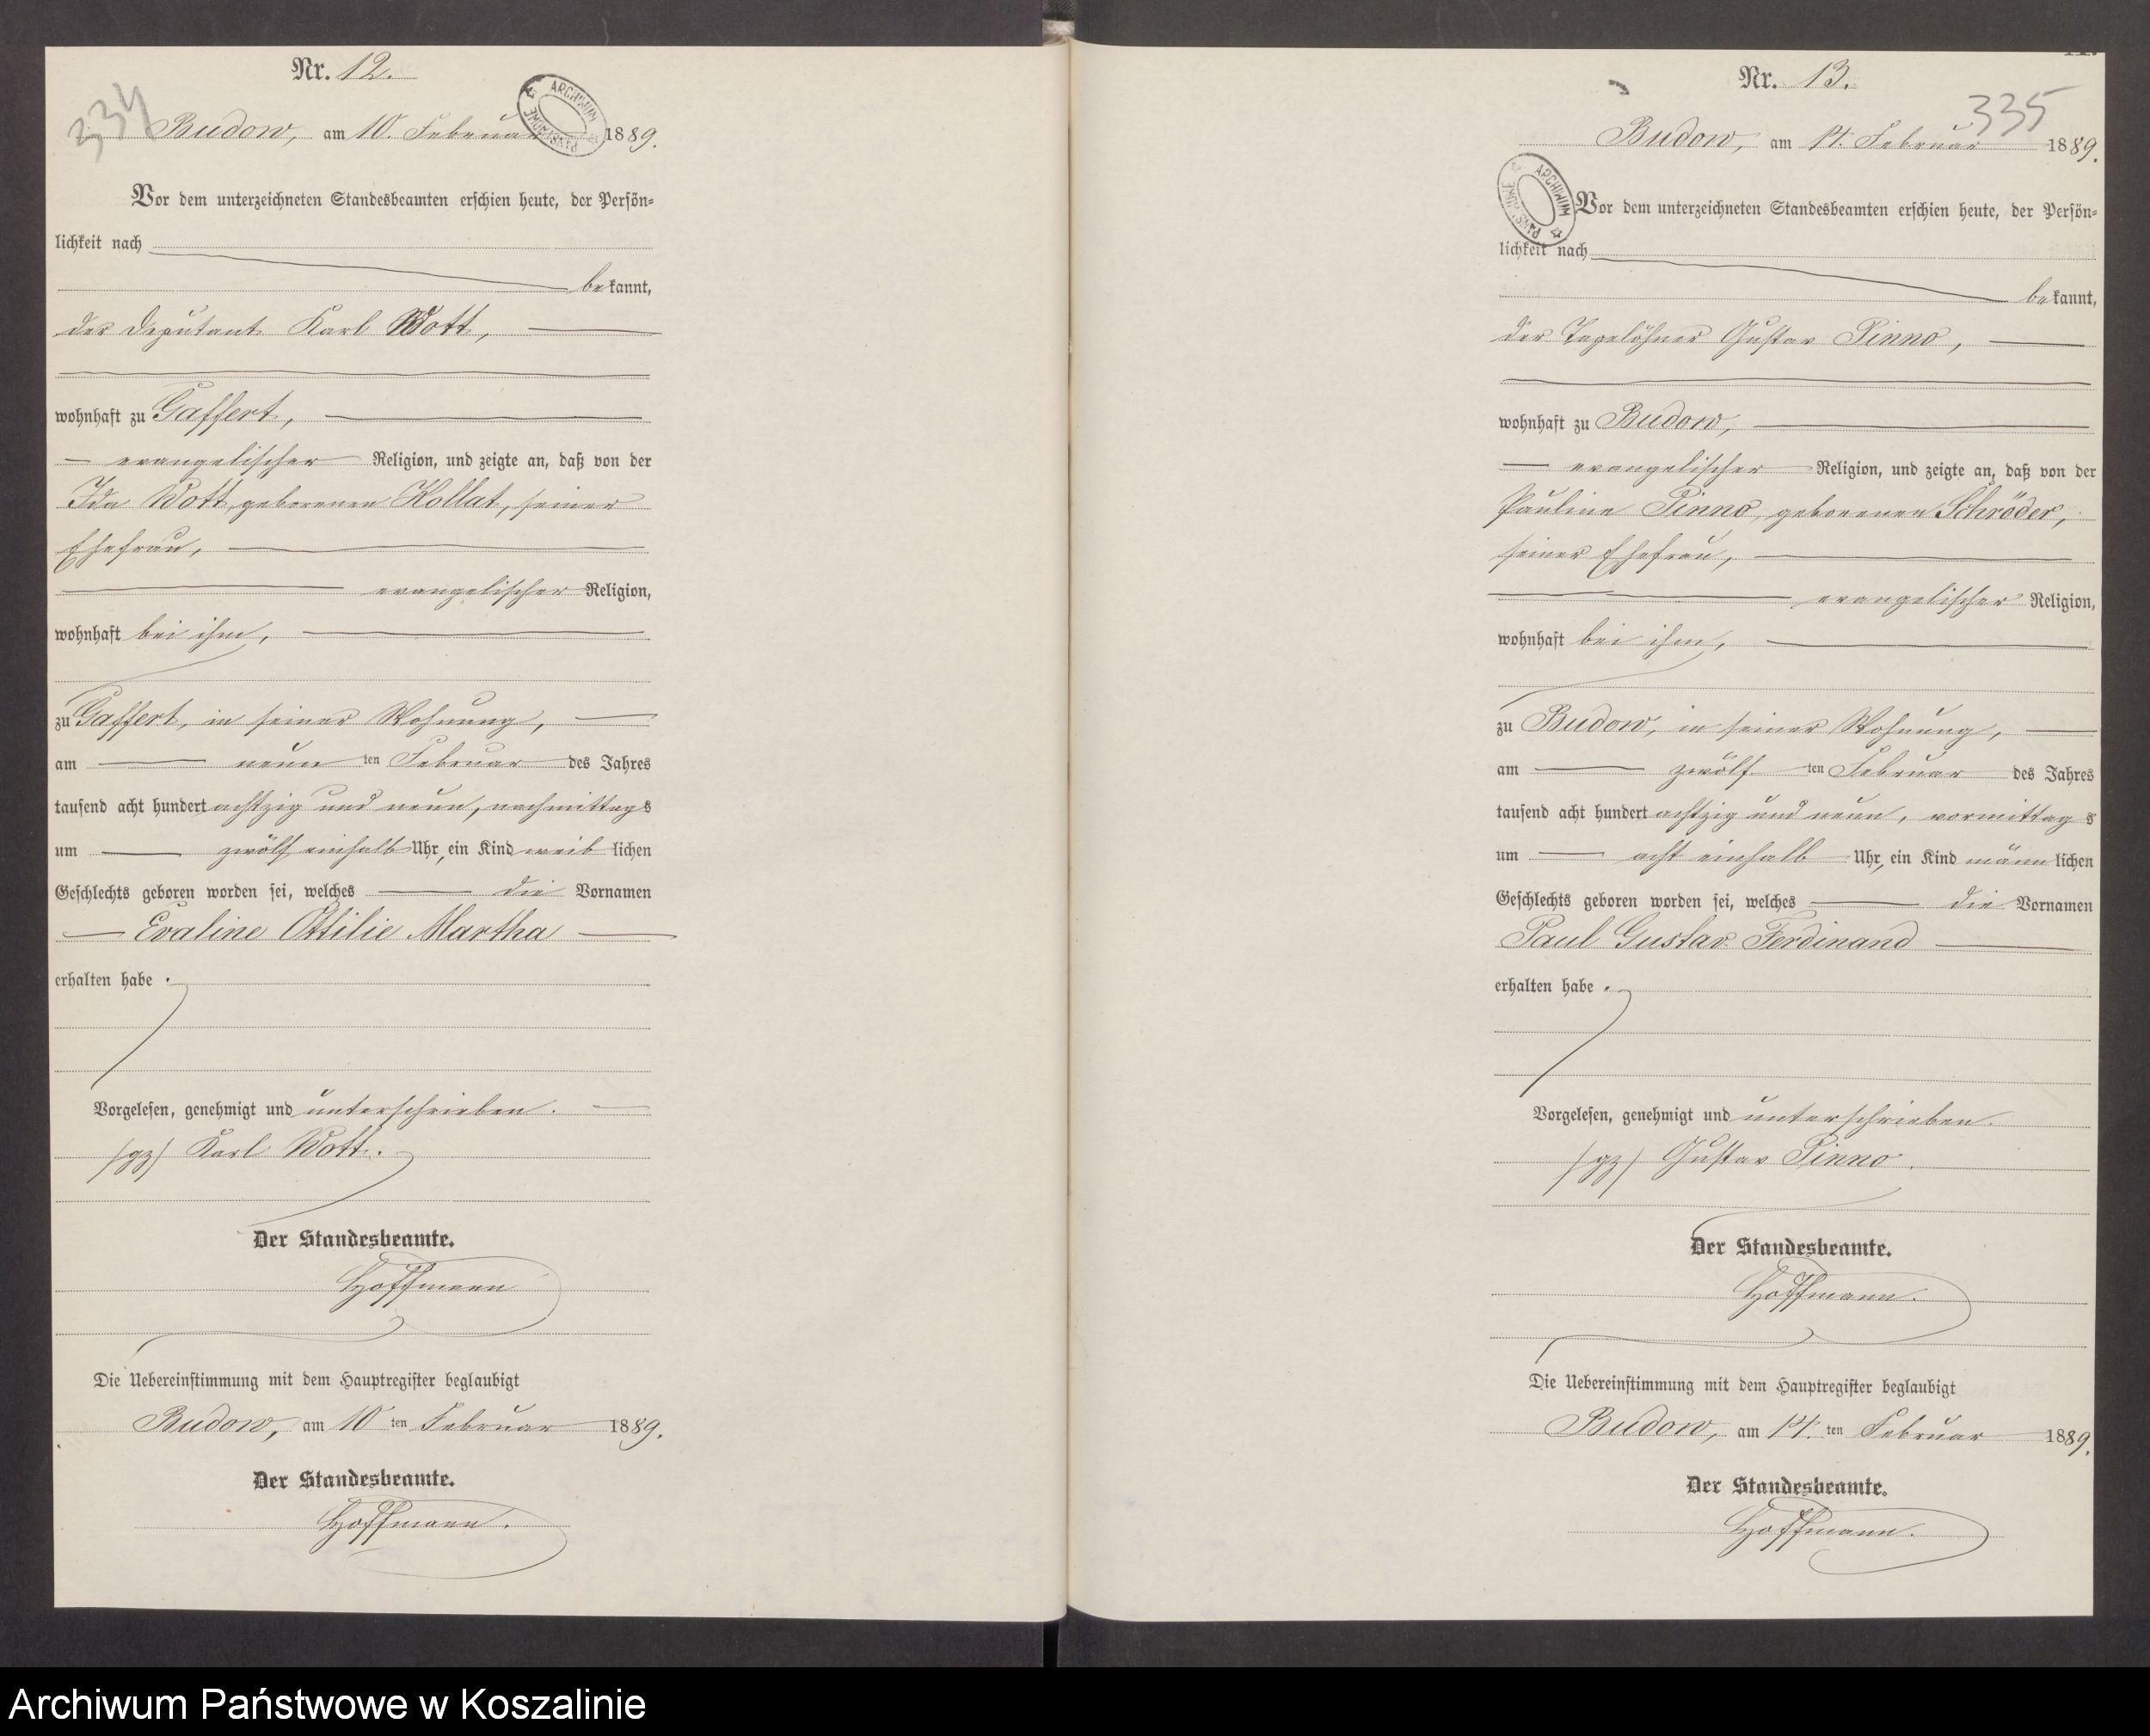 Nr. 12.
334
Budow, am 10. Februar 1889.
ARCHIWUM PAŃSTWOWE
Vor dem unterzeichneten Standesbeamten erschien heute, der Persön=
lichkeit nach
bekannt,
der Deputant Karl Wott,
wohnhaft zu Gaffert,
evangelischer Religion, und zeigte an, daß von der
Ida Wott, geborenen Kollat, seiner
Ehefrau,
evangelischer Religion,
wohnhaft bei ihm,
zu Gaffert, in seiner Wohnung,
am neunten Februar des Jahres
tausend acht hundert achtzig und neun, nachmittags
um zwölf einhalb Uhr, ein Kind weiblichen
Geschlechts geboren worden sei, welches die Vornamen
Evaline Ottilie Martha
erhalten habe.
Vorgelesen, genehmigt und unterschrieben.
(gz) Karl Wott.
Der Standesbeamte.
Hoffmann
Die Uebereinstimmung mit dem Hauptregister beglaubigt
Budow, am 10ten Februar 1889.
Der Standesbeamte.
Hoffmann.
Nr. 13.
335
Budow, am 14. Februar 1889.
ARCHIWUM PAŃSTWOWE
Vor dem unterzeichneten Standesbeamten erschien heute, der Persön=
lichkeit nach
bekannt,
der Tagelöhner Gustav Pinno,
wohnhaft zu Budow,
evangelischer Religion, und zeigte an, daß von der
Pauline Pinno, geborenen Schröder,
seiner Ehefrau,
evangelischer Religion,
wohnhaft bei ihm,
zu Budow, in seiner Wohnung,
am zwölften Februar des Jahres
tausend acht hundert achtzig und neun, vormittags
um acht einhalb Uhr, ein Kind männlichen
Geschlechts geboren worden sei, welches die Vornamen
Paul Gustav Ferdinand
erhalten habe.
Vorgelesen, genehmigt und unterschrieben.
(gz) Gustav Pinno.
Der Standesbeamte.
Hoffmann.
Die Uebereinstimmung mit dem Hauptregister beglaubigt
Budow, am 14.ten Februar 1889.
Der Standesbeamte.
Hoffmann.
Archiwum Państwowe w Koszalinie